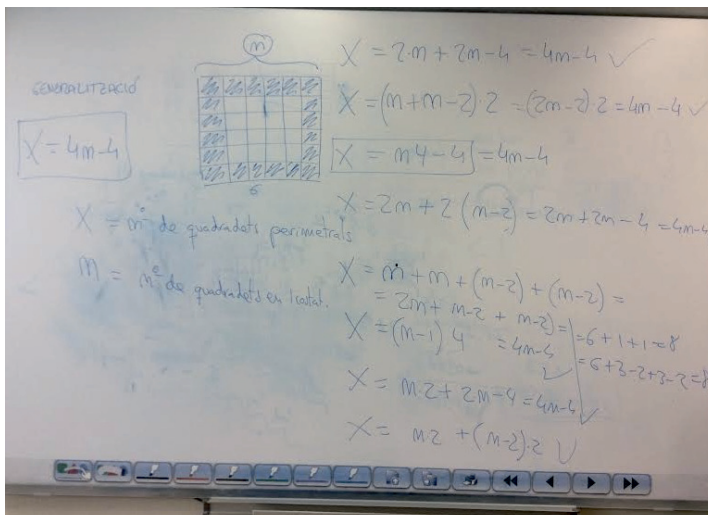 GENERALITZACIÓ
X = 4m-4
m
6
X = nº de quadradets perimetrals
m = nº de quadradets en 1 costat.
X = 2·m + 2m-4 = 4m-4 ✓
X = (m+m-2)·2 = (2m-2)·2 = 4m-4 ✓
X = m4-4 = 4m-4
X = 2m + 2(m-2) = 2m + 2m - 4 = 4m-4
X = m + m + (m-2) + (m-2) =
= 2m + m-2 + m-2) = = 6+1+1=8
X = (m-1) 4 = 4m-4 ✓ = 6+3-2+3-2=8
X = m·2 + 2m-4 = 4m-4 ✓
X = m·2 + (m-2)·2 ✓